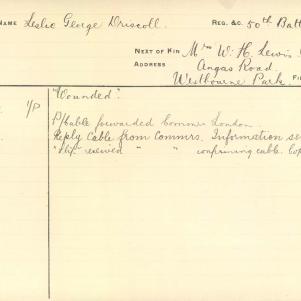 NAME Leslie George Driscoll REG. &C. 50th Batt
NEXT OF KIN Mrs W. H. Lewis
ADDRESS Angas Road
Westbourne Park
1/P "Wounded".
P/Cable forwarded Commrs London
Reply Cable from Commrs. Information se
"Slip" received " " confirming cable. Cop